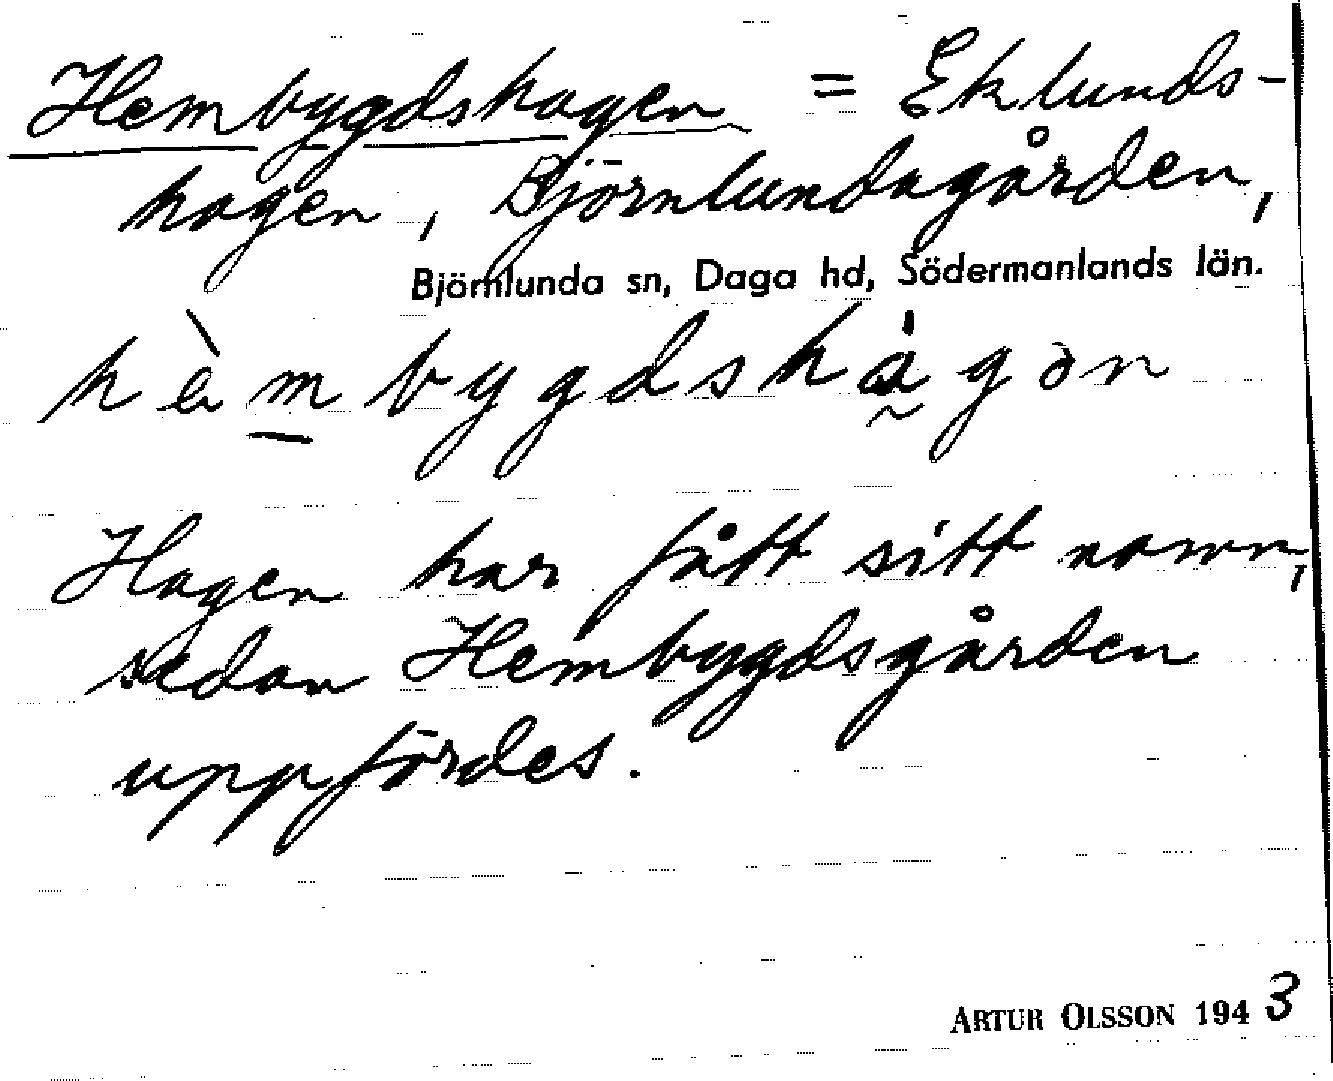 Hembygdshagen = Eklunds-
hagen, Björnlundagården,
Björnlunda sn, Daga hd, Södermanlands län.
hèmbygdshágən
Hagen har fått sitt namn,
sedan Hembygdsgården
uppfördes.
ARTUR OLSSON 1943